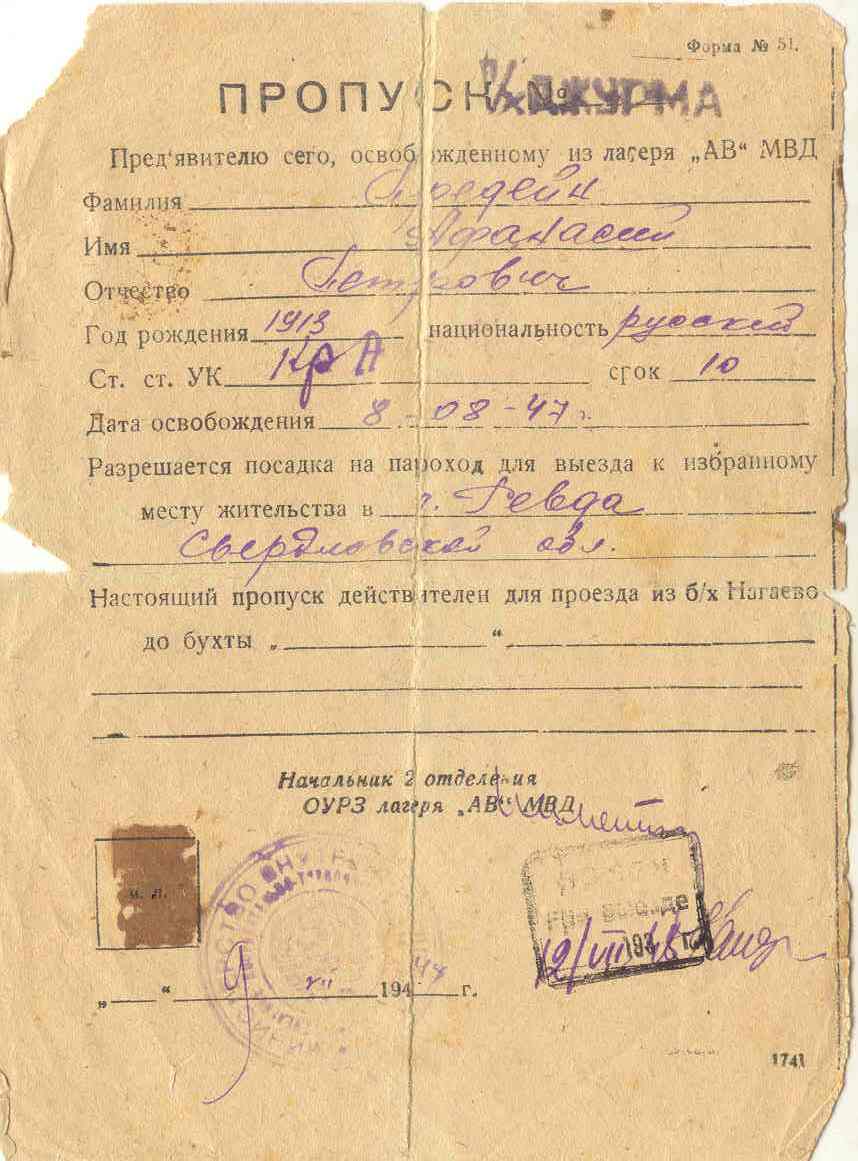 Форма № 51.
ПРОПУСК №
п/х ДЖУРМА
Пред'явителю сего, освобожденному из лагеря „АВ“ МВД
Фамилия
Имя Афанасий
Отчество Петрович
Год рождения 1913 национальность русский
Ст. ст. УК КРА срок 10
Дата освобождения 8-08-47 г.
Разрешается посадка на пароход для выезда к избранному
месту жительства в г. Ревда
Свердловской обл.
Настоящий пропуск действителен для проезда из б/х Нагаево
до бухты „ “
Начальник 2 отделения
ОУРЗ лагеря „АВ“ МВД
м. п.
при выезде
193 г.
12/VIII 48
„ 9 “ 194 г.
1741